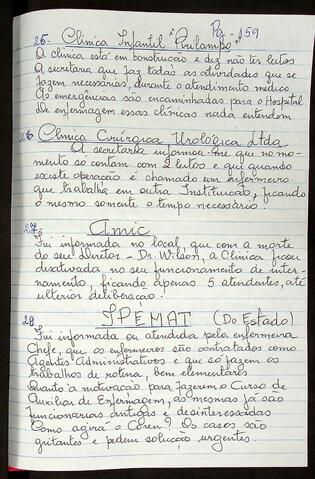 Pg - 159
25- Clínica Infantil "Pirilampo"
A clínica está em construção e diz não ter leitos
A secretaria que faz todas as atividades que se
fazem necessárias, durante o atendimento médico
As emergências são encaminhadas para o Hospital
De enfermagem essas clínicas nada entendem
26 Clínica Cirúrgica Urológica Ltda
A secretária informou-me que no mo-
mento só contam com 2 leitos e que quando
existe operação é chamado um enfermeiro
que trabalha em outra Instituição, ficando
o mesmo somente o tempo necessário
27. Amic
Fui informada no local, que com a morte
do seu Diretor - Dr. Wilson, a Clínica ficou
desativada no seu funcionamento de inter-
namento, ficando apenas 5 atendentes, até
ulterior deliberação.
28 IPEMAT (Do Estado)
Fui informada ou atendida pela enfermeira
Chefe, que os enfermeiros são contratados como
Agentes Administrativos e que só fazem os
trabalhos de rotina bem elementares
Quanto a motivação para fazerem o Curso de
Auxiliar de Enfermagem, as mesmas já são
funcionárias antigas e desinteressadas
Como agirá o Coren? Os casos são
gritantes e pedem solução urgentes.